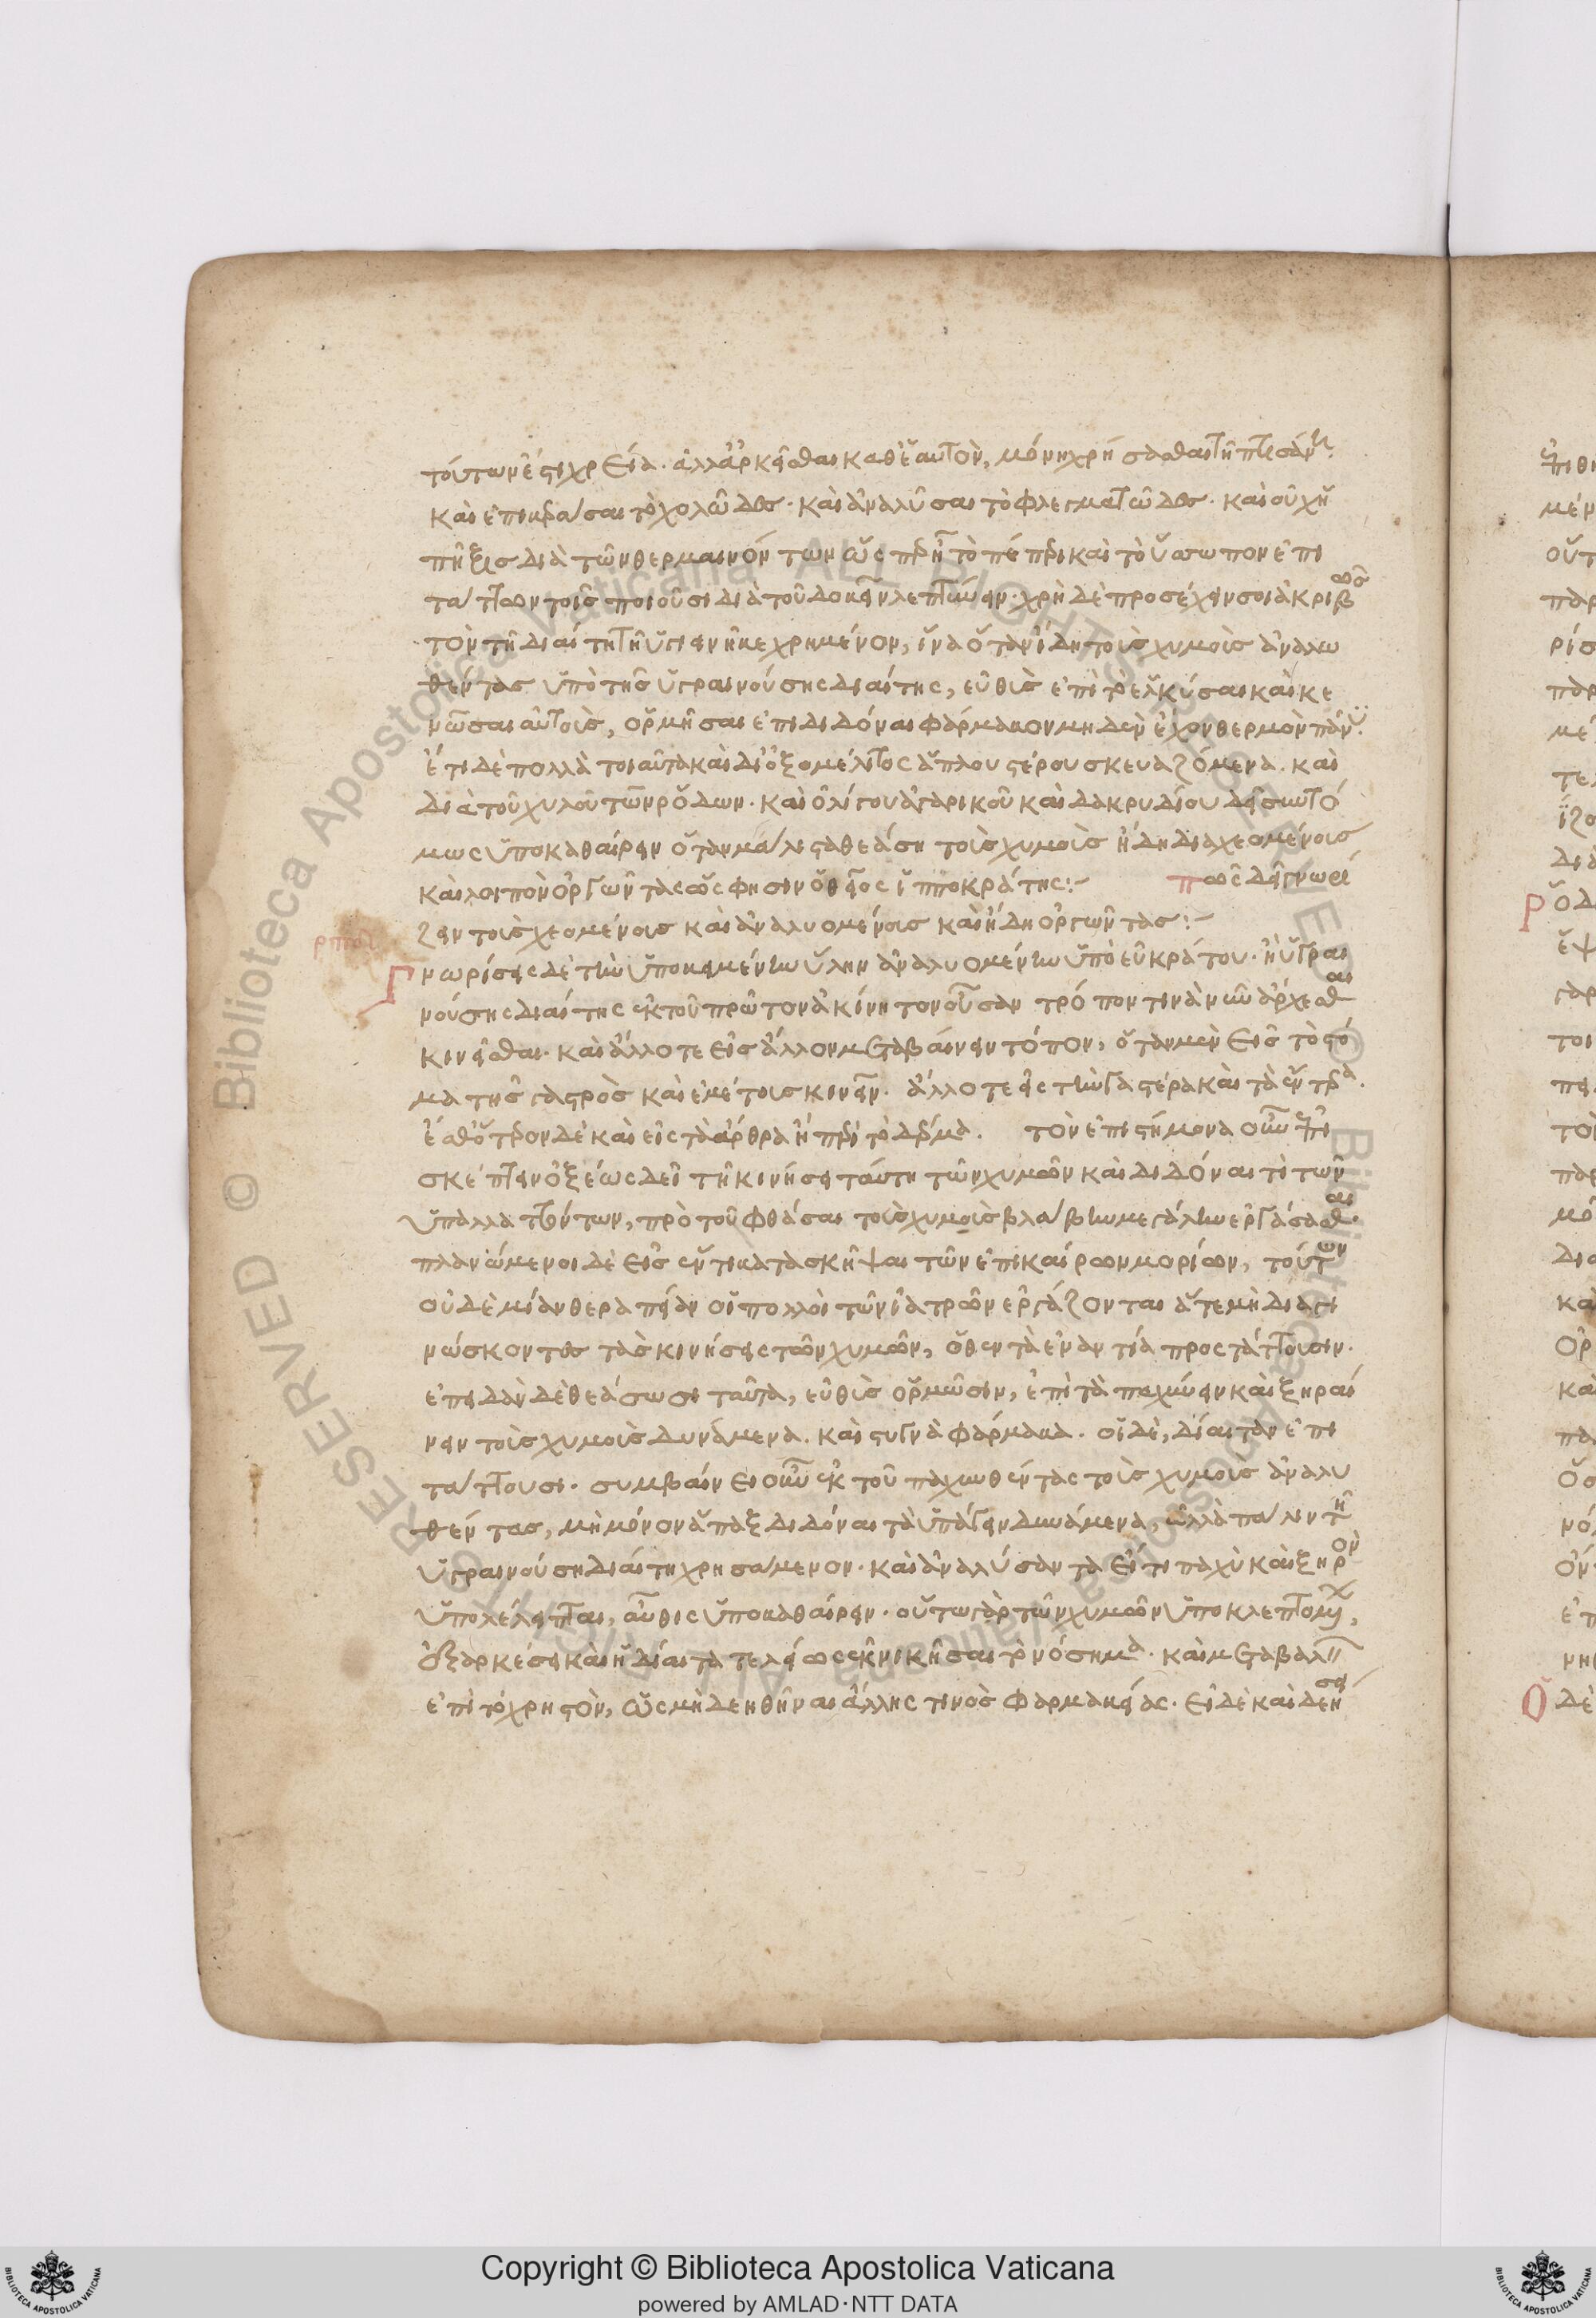 τούτων ἐστὶ χρεία. ἀλλ' ἀρκεῖσθαι καθ' ἑαυτὸν, μόνη χρήσασθαι τῆ πτισάνη
καὶ ἐπικρᾶσαι τὸ χολῶδες. καὶ ἀναλῦσαι τὸ φλεγματῶδες. καὶ οὐχ ἡ
πῆξις διὰ τῶν θερμαινόντων ὡς περ ἦν τὸ πέπερι καὶ τὸ ὕσσωπον ἐπι
τάττων τοῖς ποιοῦσι διὰ τοῦ δοκεῖν λεπτύνειν. χρὴ δὲ προσέχειν σοι ἀκριβῶς
τὸν τῆ διαίτη τῆ ὑγιεινῆ κεχρημένον, ἵνα ὅταν ἴδη τοὺς χυμοὺς ἀναλω
θέντας ὑπὸ τῆς ὑγραινούσης διαίτης, εὐθὺς ἐπὶ τὸ ἑλκύσαι καὶ κε
νῶσαι αὐτοὺς, ὁρμῆσαι ἐπιδιδόναι φάρμακον μηδὲν ἔχον θερμὸν πάνυ.
ἔτι δὲ πολλὰ τοιαῦτα καὶ δι' ὀξομέλιτος ἁπλουστέρου σκευαζόμενα. καὶ
διὰ τοῦ χυλοῦ τῶν ρόδων. καὶ ὀλίγου ἀγαρικοῦ καὶ δακρυδίου δεῖ συντό
μως ὑποκαθαίρειν ὅταν μάλιστα θεάση τοὺς χυμοὺς ἤδη διαχεομένους
καὶ λοιπὸν ὀργῶντας ὥς φησιν ὁ θεῖος ἱπποκράτης:- πῶς δεῖ γνωρί
ζειν τοὺς χεομένους καὶ ἀναλυομένους καὶ ἤδη ὀργῶντας:-
Γνωρίσεις δὲ τὴν ὑποκειμένην ὕλην ἀναλυομένην ὑπὸ εὐκράτου. ἢ ὑγραι
νούσης διαίτης ἐκ τοῦ πρῶτον ἀκίνητον οὖσαν τρόπον τινὰ νῦν ἄρχεσθαι
κινεῖσθαι. καὶ ἄλλοτε εἰς ἄλλον μεταβαίνειν τόπον, ὅταν μὲν εἰς τὸ στό
μα τῆς γαστρὸς καὶ ἐμέτοις κινεῖν. ἄλλοτε εἰς τὴν γαστέρα καὶ τὰ ἔντερα.
ἔσθ' ὅτε δὲ καὶ εἰς τὰ ἄρθρα ἢ περὶ τὸ δέρμα. τὸν ἐπιστήμονα οὖν ἐπι
σκέπτειν ὀξέως δεῖ τῆ κινήσει ταύτη τῶν χυμῶν καὶ διδόναι τι τῶν
ὑπαλλαττόντων, πρὸ τοῦ φθάσαι τοὺς χυμοὺς βλάβην μεγάλην ἐργάσασθαι.
πλανώμενοι δὲ εἰς ἕν τι κατασκῆψαι τῶν ἐπικαίρων μορίων, τούτων
οὐδὲ μίαν θεραπείαν οἱ πολλοὶ τῶν ἰατρῶν ἐργάζονται ἅτε μὴ διαγι
νώσκοντες τὰς κινήσεις τῶν χυμῶν, ὅθεν τὰ ἐναντία προστάττουσιν.
ἐπειδὰν δὲ θεάσωσι ταῦτα, εὐθὺς ὁρμῶσιν, ἐπὶ τὰ παχύνειν καὶ ξηραί
νειν τοὺς χυμοὺς δυνάμενα. καὶ στυγνὰ φάρμακα. οἱ δὲ, δίαιταν ἐπι
τάττουσι. συμβαίνει οὖν ἐκ τοῦ παχυνθέντας τοὺς χυμοὺς ἀναλυ
θέντας, μὴ μόνον ἅπαξ διδόναι τὰ ὑπάγειν δυνάμενα, ἀλλὰ πάλιν τῆ
ὑγραινούση διαίτη χρησάμενον. καὶ ἀναλύσαντα εἴ τι παχὺ καὶ ξηρὸν
ὑπολέλειπται, αὖθις ὑποκαθαίρειν. οὕτω γὰρ τῶν χυμῶν ὑποκλεπτομένων,
ἐξαρκέσει καὶ ἡ δίαιτα τελείως ἐκνικῆσαι τὸ νόσημα. καὶ μεταβαλεῖν
ἐπὶ τὸ χρηστὸν, ὡς μὴ δεηθῆναι ἄλλης τινὸς φαρμακείας. εἰ δὲ καὶ δεήσει
Copyright © Biblioteca Apostolica Vaticana
powered by AMLAD·NTT DATA